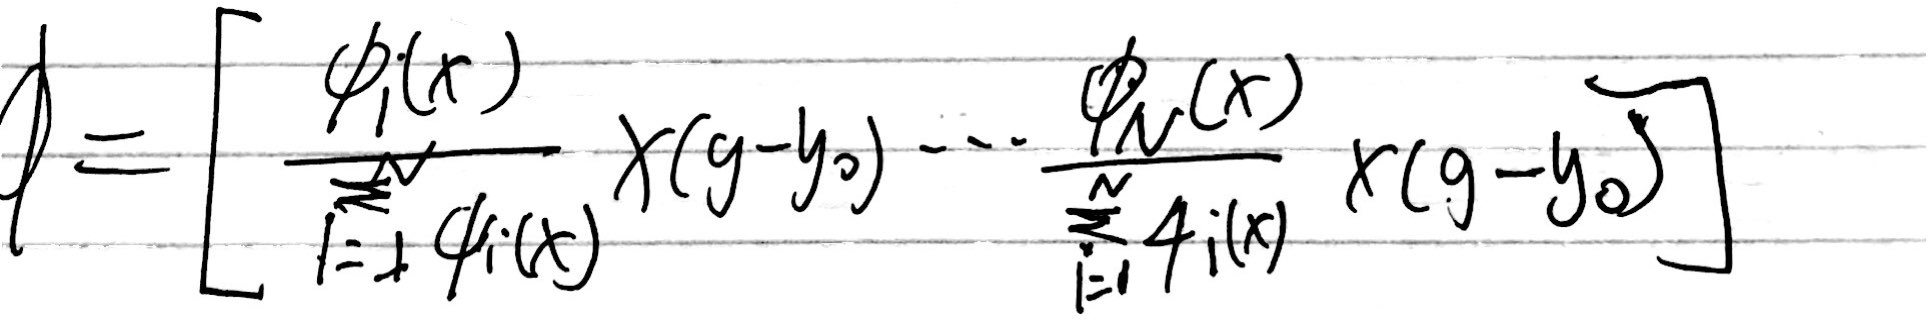 ϕ = [ ψ₁(x) / ∑_{i=1}^{N} ψᵢ(x) x(g−y₀) ---- ψ_N(x) / ∑_{i=1}^{N} ψᵢ(x) x(g−y₀) ]